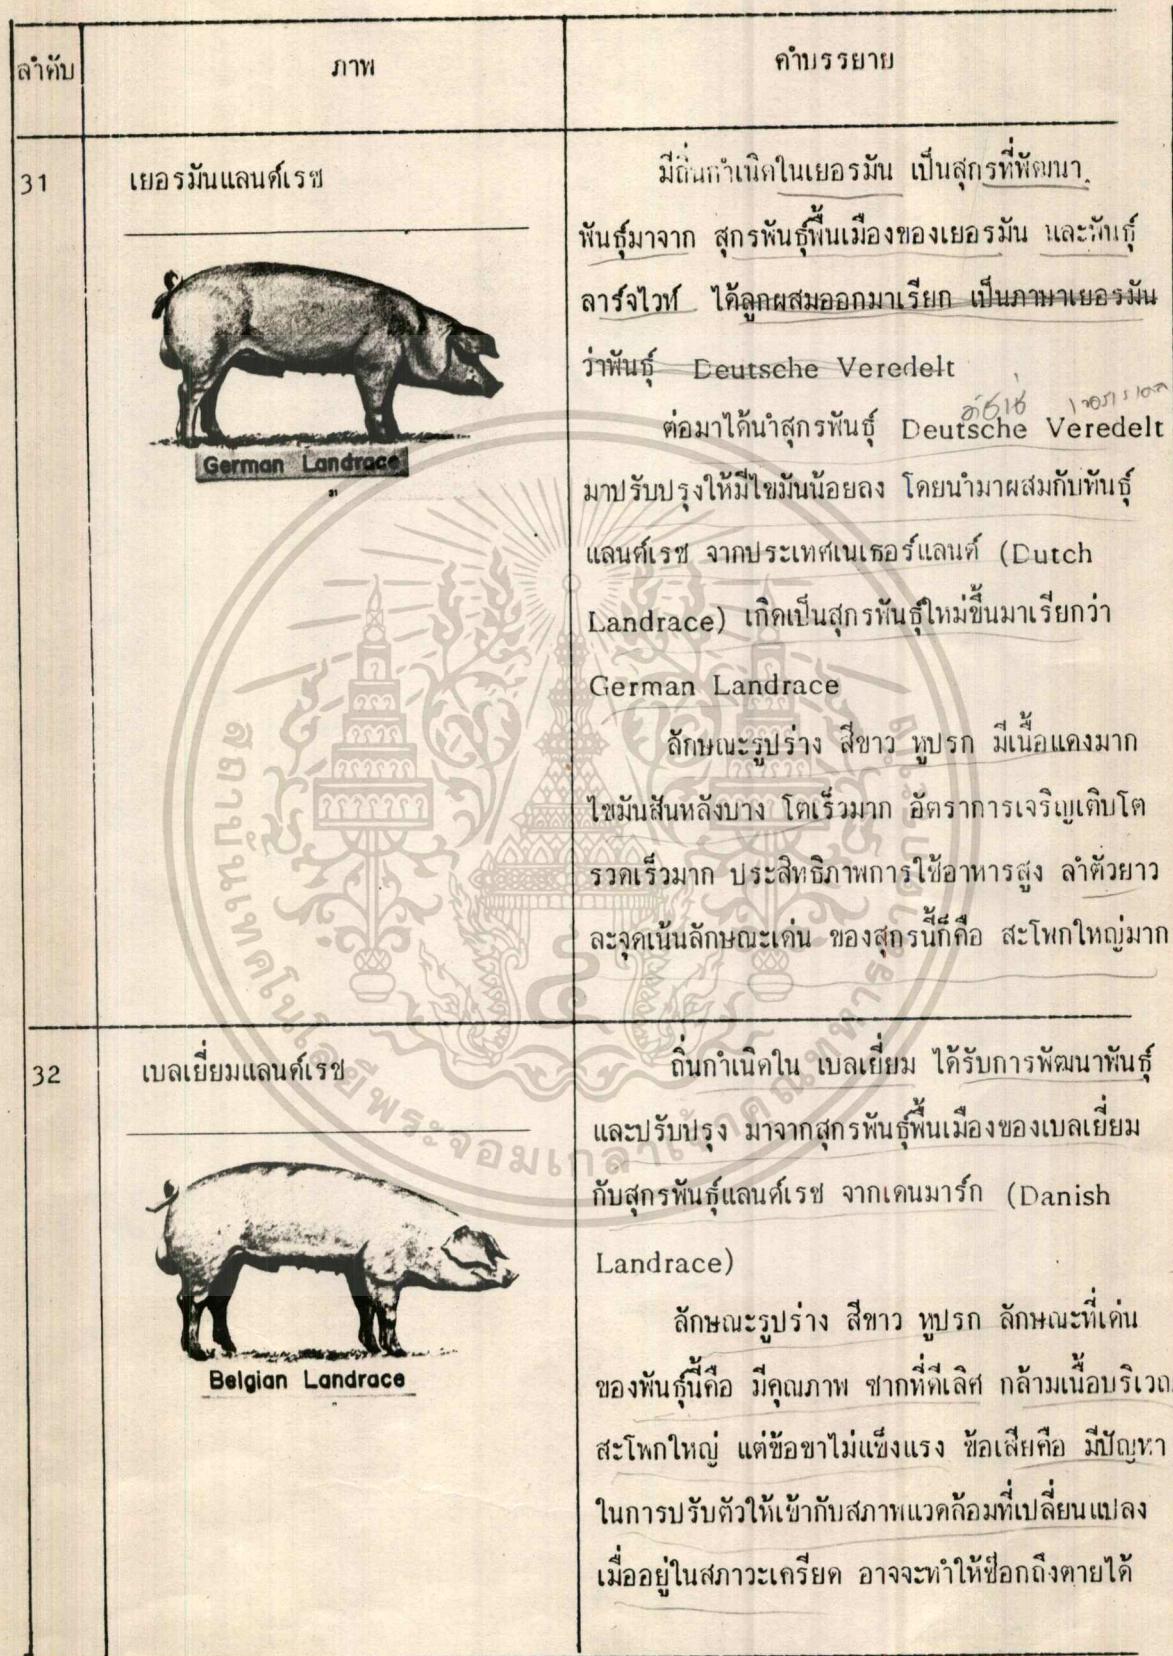 ลำดับ
ภาพ
คำบรรยาย
31
เยอรมันแลนด์เรซ
German Landrace
31
มีถิ่นกำเนิดในเยอรมัน เป็นสุกรที่พัฒนา
พันธุ์มาจาก สุกรพันธุ์พื้นเมืองของเยอรมัน และพันธุ์
ลาร์จไวท์ ได้ลูกผสมออกมาเรียก เป็นภาษาเยอรมัน
ว่าพันธุ์ Deutsche Veredelt
ต่อมาได้นำสุกรพันธุ์ Deutsche Veredelt
มาปรับปรุงให้มีไขมันน้อยลง โดยนำมาผสมกับพันธุ์
แลนด์เรซ จากประเทศเนเธอร์แลนด์ (Dutch
Landrace) เกิดเป็นสุกรพันธุ์ใหม่ขึ้นมาเรียกว่า
German Landrace
ลักษณะรูปร่าง สีขาว หูปรก มีเนื้อแดงมาก
ไขมันสันหลังบาง โตเร็วมาก อัตราการเจริญเติบโต
รวดเร็วมาก ประสิทธิภาพการใช้อาหารสูง ลำตัวยาว
ละจุดเน้นลักษณะเด่น ของสุกรนี้ก็คือ สะโพกใหญ่มาก
32
เบลเยี่ยมแลนด์เรซ
Belgian Landrace
ถิ่นกำเนิดใน เบลเยี่ยม ได้รับการพัฒนาพันธุ์
และปรับปรุง มาจากสุกรพันธุ์พื้นเมืองของเบลเยี่ยม
กับสุกรพันธุ์แลนด์เรซ จากเดนมาร์ก (Danish
Landrace)
ลักษณะรูปร่าง สีขาว หูปรก ลักษณะที่เด่น
ของพันธุ์นี้คือ มีคุณภาพ ซากที่ดีเลิศ กล้ามเนื้อบริเวณ
สะโพกใหญ่ แต่ข้อขาไม่แข็งแรง ข้อเสียคือ มีปัญหา
ในการปรับตัวให้เข้ากับสภาพแวดล้อมที่เปลี่ยนแปลง
เมื่ออยู่ในสภาวะเครียด อาจจะทำให้ช๊อกถึงตายได้
สถาบันเทคโนโลยีพระจอมเกล้าเจ้าคุณทหารลาดกระบัง